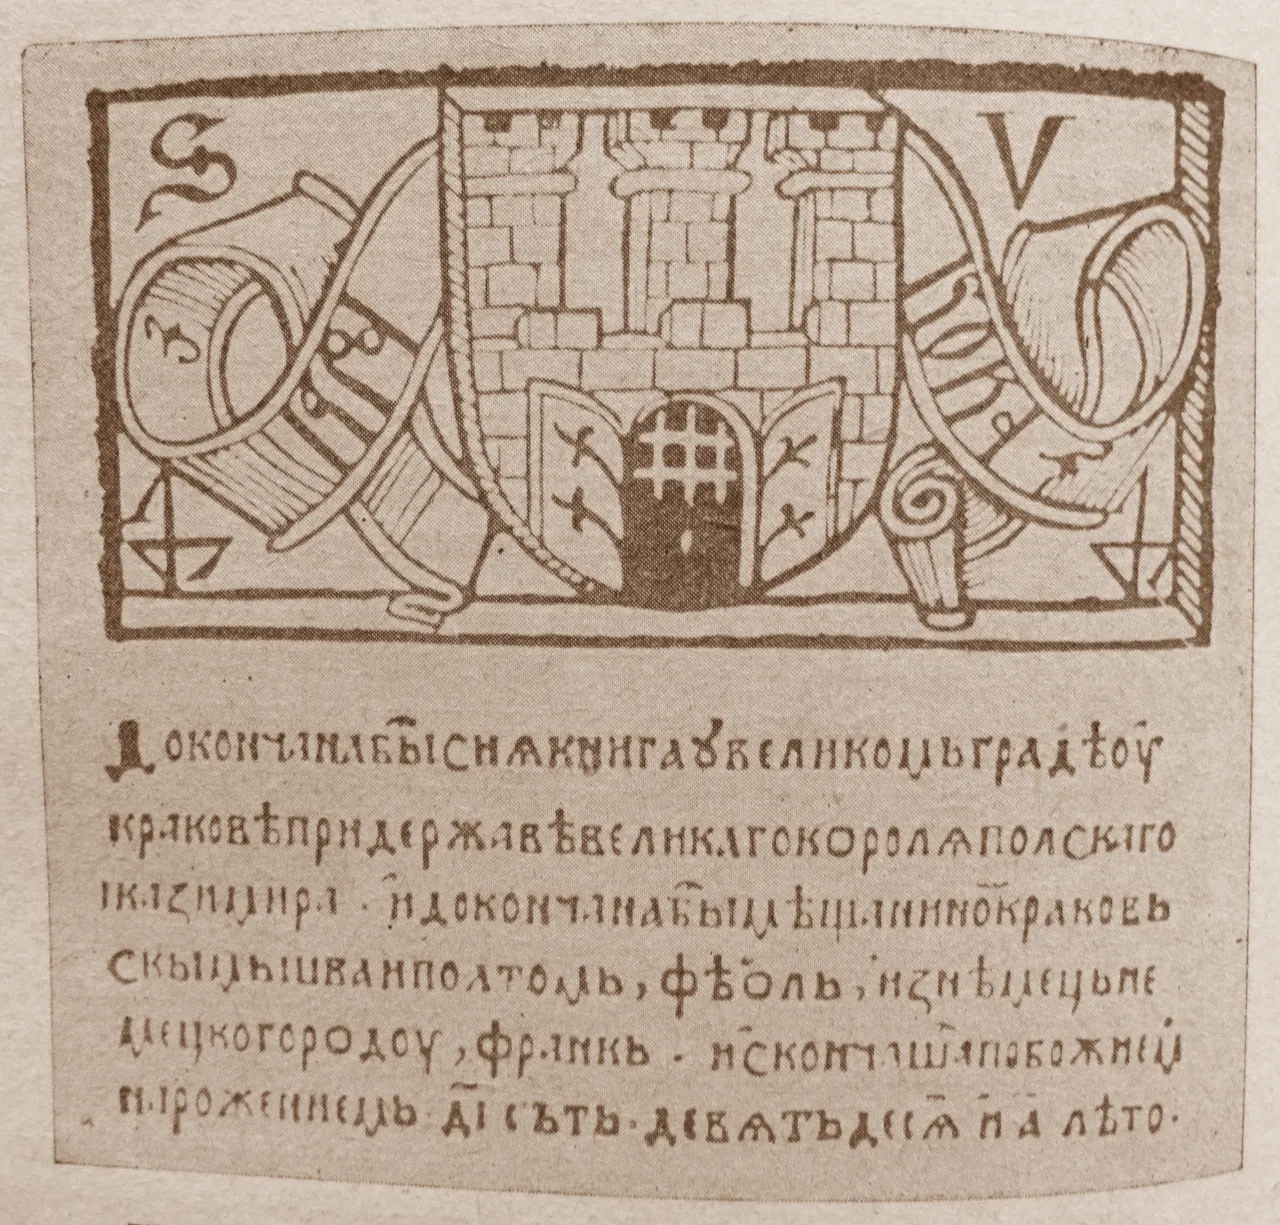 S V
Докончана бы́ сиѧ книга ꙋ великомь градѣ оу
краковѣ при державѣ великаго королѧ полскаго
казимира · и докончана бы́ мѣщаниномь краковь
скымь шванполтомь, фѣоль, из нѣмець не
мецкого родоу, франкь · и скончаша по божием
нарожением ді сьть девѧтьдесѧ и а лѣто ·